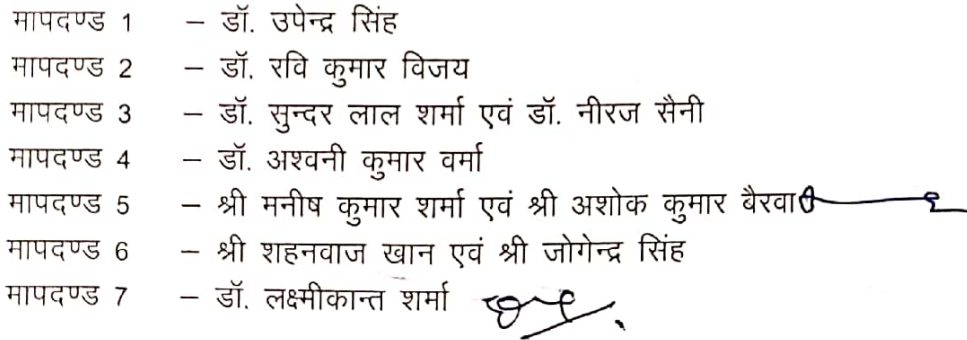 मापदण्ड 1 – डॉ. उपेन्द्र सिंह
मापदण्ड 2 – डॉ. रवि कुमार विजय
मापदण्ड 3 – डॉ. सुन्दर लाल शर्मा एवं डॉ. नीरज सैनी
मापदण्ड 4 – डॉ. अश्वनी कुमार वर्मा
मापदण्ड 5 – श्री मनीष कुमार शर्मा एवं श्री अशोक कुमार बैरवा
मापदण्ड 6 – श्री शहनवाज खान एवं श्री जोगेन्द्र सिंह
मापदण्ड 7 – डॉ. लक्ष्मीकान्त शर्मा